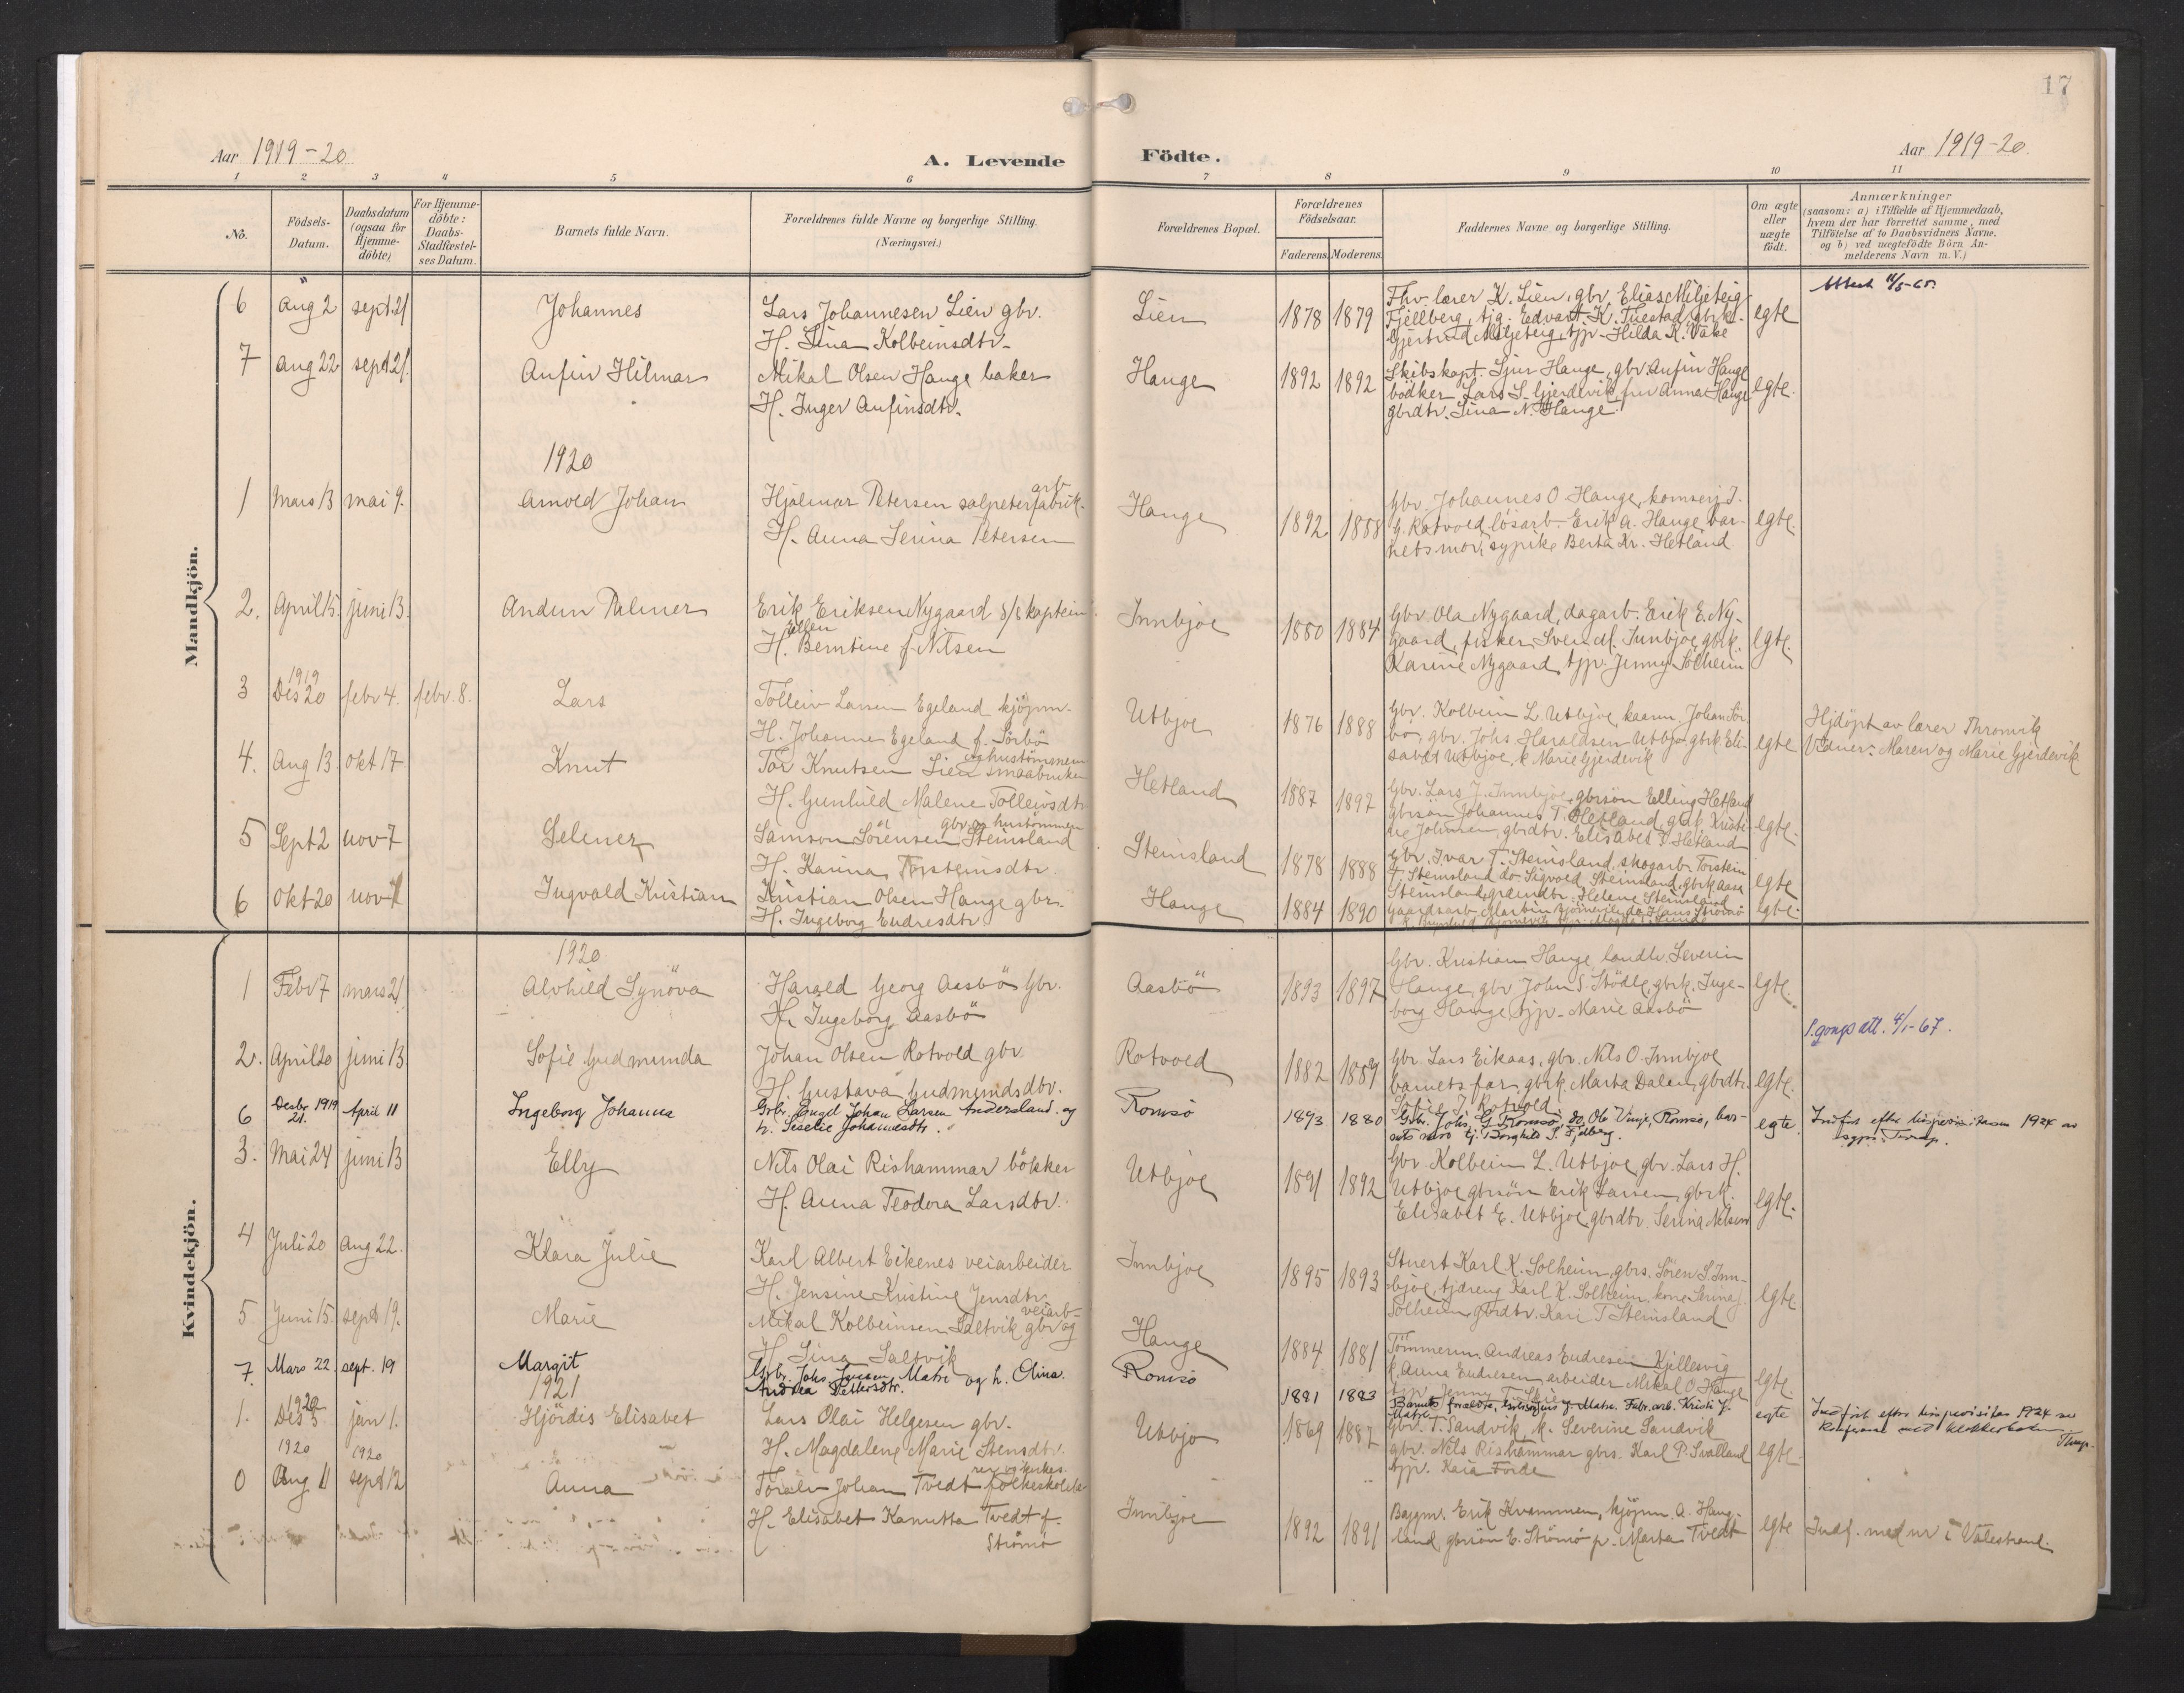 17
Aar 1919-20
A. Levende Födte.
Aar 1919-20.
1 2 3 4 5 6 7 8 9 10 11
No.
Födsels-
Datum.
Daabsdatum
(ogsaa for
Hjemme-
döbte)
For Hjemme-
döbte:
Daabs-
Stadfæstel-
ses Datum.
Barnets fulde Navn.
Forældrenes fulde Navne og borgerlige Stilling.
(Næringsvei.)
Forældrenes Bopæl.
Forældrenes
Födselsaar.
Faderens. Moderens.
Faddernes Navne og borgerlige Stilling.
Om ægte
eller
uægte
födt.
Anmærkninger
(saasom: a) i Tilfælde af Hjemmedaab,
hvem der har forrettet samme, med
Tilföielse af to Daabsvidners Navne,
og b) ved uægtefödte Börn An-
melderens Navn m. V.)
Mandkjön.
6 Aug 2 sept. 21 Johannes
Lars Johannesen Lien gbr.
H. Sina Kolbeinsdtr.
Lien 1878 1879
Fhv. lærer K. Lien, gbr. Elias Miljeteig
Fjellberg, tjg. Edvart K. Tuestad, gbrk.
Gjertrud Miljeteig, tjp. Hilda K. Våke
egte
7 Aug 22 sept 21. Anfin Hilmar
Mikal Olsen Hauge baker
H. Inger Anfinsdtr.
Hauge 1892 1892
Skibskapt. Sjur Hauge, gbr. Anfin Hauge
bödker Lars S. Gjerdevik, fru Anna Hauge
gbrdtr. Sina N. Hauge
egte.
1920
1 Mars 13 mai 9. Arnold Johan
Hjalmar Petersen salpeterfabrik-
arb.
H. Anna Serina Petersen
Hauge 1892 1888
Gbr. Johannes O Hauge, komserj J.
G. Rotvold lösarb. Erik A. Hauge, bar-
nets mor, sypike Berta Kr. Hetland
egte.
2. April 15. juni 13. Audun Palmer
Erik Eriksen Nygaard s/s kaptein
H. Ellen Berntine f. Nilsen
Innbjoe 1880 1884
Gbr. Ola Nygaard, dagarb. Erik E. Ny-
gaard, fisker Svend Innbjoe, gbrk.
Karine Nygaard, tjp. Jenny Solheim
egte.
3 1919 Des 20 febr 4. febr. 8. Lars
Tolleiv Larsen Egeland kjöpm.
H. Johanne Egeland f. Sörbö
Utbjoe 1876 1888
Gbr. Kolbein L. Utbjoe, kaarm. Johan Sör
bö, gbr. Johs Haraldsen Utbjo gbrk. Eli-
sabet Utbjoe, k Marie Gjerdevik
egte
Hjdöpt av lærer Thronvik
Vidner: Maren og Marie Gjerdevik
4. Aug 13. okt 17 Knut
Tor Knutsen Lien smaabruker
og hustömmerm
H. Gunhild Malene Tolleivsdtr.
Hetland 1887 1892
Gbr. Lars J. Innbjoe, gbrsön Elling Hetland
gbrsön Johannes T. Hetland, gbrk. Kristi-
ne Johnsen, gbrdtr. Elisabet T. Hetland
egte.
5 Sept 2 nov 7 Selmer
Samson Sörensen Steinsland
gbr. og hustömmerm
H. Karina Torsteinsdtr.
Steinsland 1878 1888
Gbr. Ivar T. Steinsland, skogarb. Torstein
T. Steinsland do Sigvald Steinsland, gbrk Aasa
Steinsland, Helene Steinsland
egte
6 Okt 20 nov Ingvald Kristian
Kristian Olsen Hauge gbr.
H. Ingeborg Endresdtr.
Hauge 1884 1890
Gaardsarb. Martin do Hans Strömö
egte.
Kvindekjön.
1920
1 Febr 7 mars 21 Alvhild Synöva
Harald Georg Aasbö Gbr.
H. Ingeborg Aasbö
Aasbö 1893 1897
Gbr. Kristian Hauge, landh. Severin
Hauge, gbr. John S. Stödle, gbrk. Inge-
borg Hauge, tjp. Marie Aasbö
egte.
2. April 20 juni 13. Sofie Gudmunda
Johan Olsen Rotvold gbr
H. Gustava Gudmundsdtr.
Rotvold 1882 1889
Gbr. Lars Eikaas, gbr. Nils O. Innbjoe
barnets far, gbrk. Marta Dalen, gbrdtr.
Sofie J. Rotvold
egte.
att. 4/1-67.
6 Desbr 1919 21. April 11 Ingeborg Johanna
Gbr. Engel Johan Larsen Andersland og
h. Seselie Johannesdtr.
Romsö 1893 1880
Gbr. Johs. G. Romsö, do. Ole Vinje, Romsö, bar-
nets mor, tj. Borghild S. Fjelberg.
egte.
Indfört efter bispevisitasen 1924 av
3. Mai 24 juni 13 Elly
Nils Olai Rishammar bökker
H. Anna Teodora Larsdtr.
Utbjoe 1891 1892
Gbr. Kolbein L. Utbjoe, gbr. Lars H.
Utbjoe gbrsön Erik Larsen, gbrk.
Elisabet E. Utbjoe, gbrdtr. Serina Nilsen
egte.
4 Juli 20 Aug 22. Klara Julie
Karl Albert Eikenes veiarbeider
H. Jensine Kristine Jensdtr.
Innbjoe 1895 1893
Stuert Karl K. Solheim, gbrs. Sören S. Inn-
bjoe, tjdreng Karl K. Solheim, kone Serine J.
Solheim, gbrdtr. Kari T Steinsland
egte
5. Juni 15. sept 19. Marie
Mikal Kolbeinsen Saltvik gbr og
veiarb.
H. Sina Saltvik
Hauge 1884 1881
Tömmerm. Andreas Endresen Kjellesvig
k. Anna Endresen, arbeider Mikal O. Hauge
tjp. Jenny T.
egte.
7. Mars 22. sept. 19 Margit
Gbr. Johs. Matre og h. Olina
Andrea Pettersdtr.
Romsö 1881 1883
Barnets forældre, J. Matre. Fabr. arb. Kristi J.
Matre.
egte
Indfört efter bispevisitas 1924 av
konferanse med klokkerboken
1921
1. 1920 Des 5 jan 1. Hjördis Elisabet
Lars Olai Helgesen gbr.
H. Magdalene Marie Stensdtr.
Utbjo 1869 1882
Gbr. T. Sandvik, k. Severine Sandvik
gbr. Nils Rishammar gbrs. Karl P. Svalland
tjp. Kaia Förde
egte
0 1920 Aug 11 1920 sept 12 Anna
Toralv Johan Tvedt folkeskole
H. Elisabet Kanutta Tvedt f.
Strömö
Innbjoe 1892 1891
Bygm. Erik Kvammen, kjöpm. A. Haug-
land, gbrsön E. Strömö p. Marta Tvedt
egte
Indf. med nr i Valestrand.